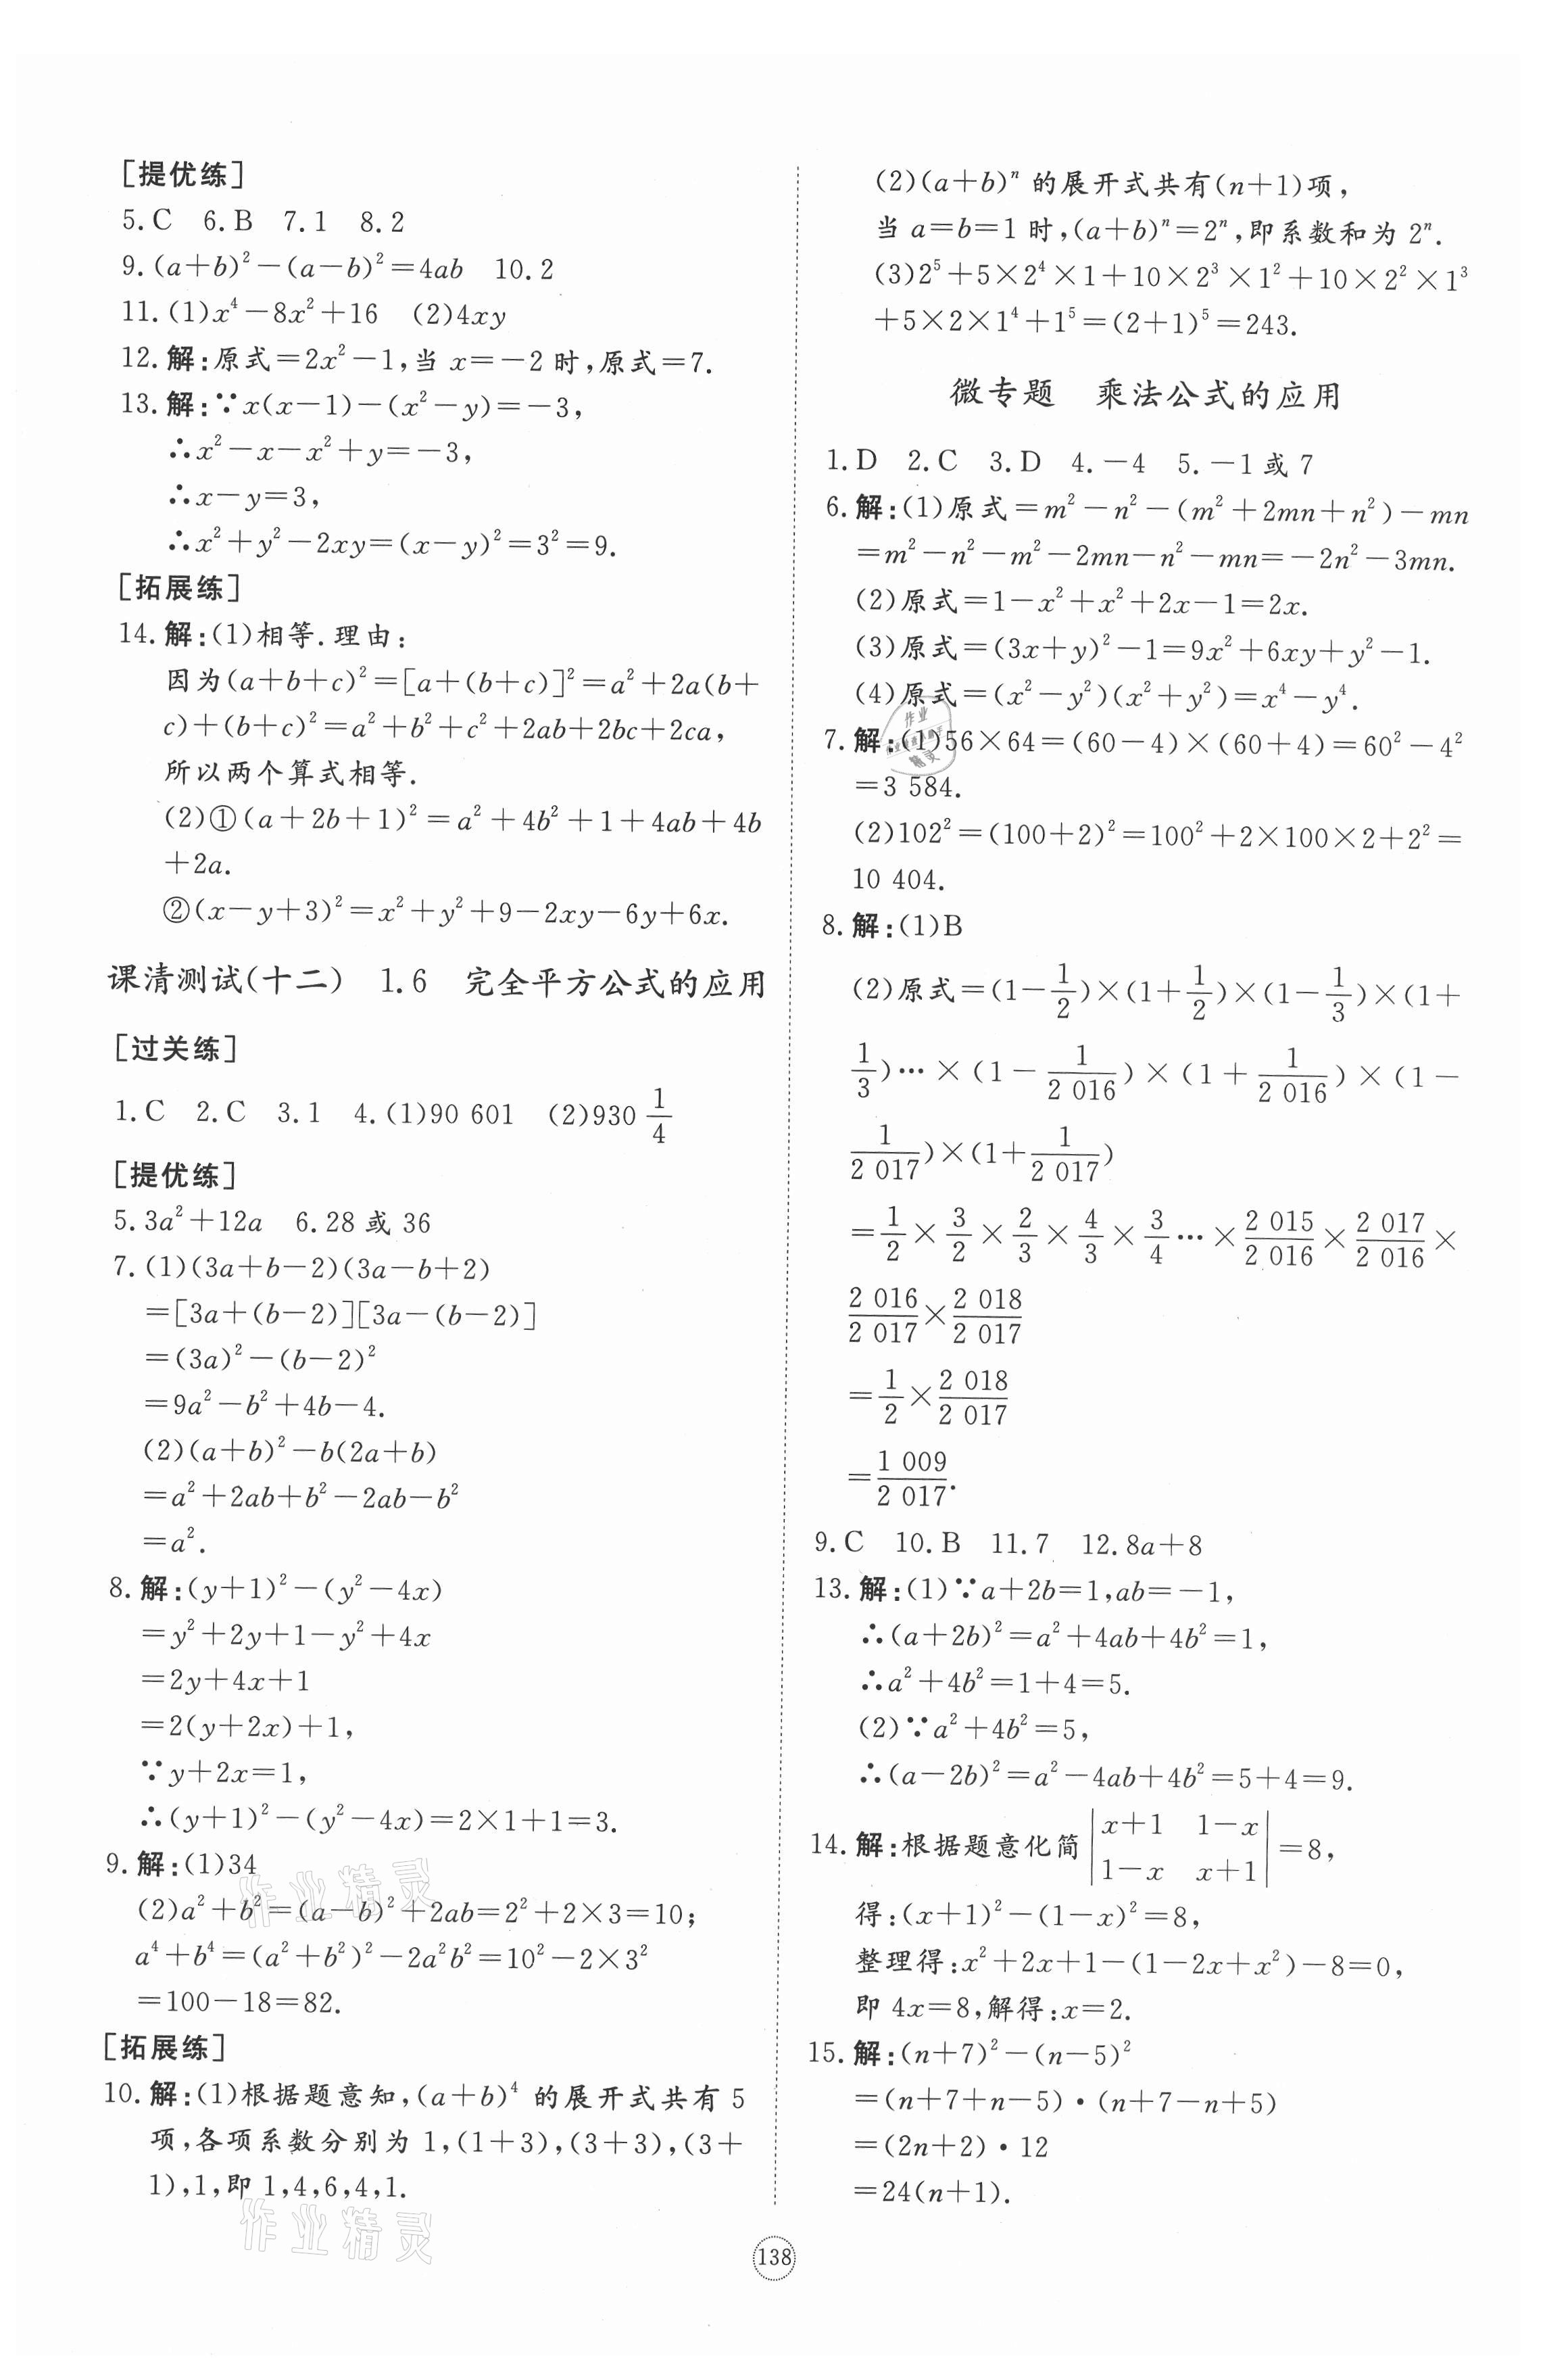 [提优练]
5.C 6.B 7.1 8.2
9.(a+b)²-(a-b)²=4ab 10.2
11.(1)x⁴-8x²+16 (2)4xy
12.解:原式=2x²-1,当 x=-2 时,原式=7.
13.解:∵x(x-1)-(x²-y)=-3,
∴x²-x-x²+y=-3,
∴x-y=3,
∴x²+y²-2xy=(x-y)²=3²=9.
[拓展练]
14.解:(1)相等.理由:
因为(a+b+c)²=[a+(b+c)]²=a²+2a(b+
c)+(b+c)²=a²+b²+c²+2ab+2bc+2ca,
所以两个算式相等.
(2)①(a+2b+1)²=a²+4b²+1+4ab+4b
+2a.
②(x-y+3)²=x²+y²+9-2xy-6y+6x.
课清测试(十二) 1.6 完全平方公式的应用
[过关练]
1.C 2.C 3.1 4.(1)90 601 (2)930 1/4
[提优练]
5.3a²+12a 6.28 或 36
7.(1)(3a+b-2)(3a-b+2)
=[3a+(b-2)][3a-(b-2)]
=(3a)²-(b-2)²
=9a²-b²+4b-4.
(2)(a+b)²-b(2a+b)
=a²+2ab+b²-2ab-b²
=a².
8.解:(y+1)²-(y²-4x)
=y²+2y+1-y²+4x
=2y+4x+1
=2(y+2x)+1,
∵y+2x=1,
∴(y+1)²-(y²-4x)=2×1+1=3.
9.解:(1)34
(2)a²+b²=(a-b)²+2ab=2²+2×3=10;
a⁴+b⁴=(a²+b²)²-2a²b²=10²-2×3²
=100-18=82.
[拓展练]
10.解:(1)根据题意知,(a+b)⁴ 的展开式共有 5
项,各项系数分别为 1,(1+3),(3+3),(3+
1),1,即 1,4,6,4,1.
(2)(a+b)ⁿ 的展开式共有(n+1)项,
当 a=b=1 时,(a+b)ⁿ=2ⁿ,即系数和为 2ⁿ.
(3)2⁵+5×2⁴×1+10×2³×1²+10×2²×1³
+5×2×1⁴+1⁵=(2+1)⁵=243.
微专题 乘法公式的应用
1.D 2.C 3.D 4.-4 5.-1 或 7
6.解:(1)原式=m²-n²-(m²+2mn+n²)-mn
=m²-n²-m²-2mn-n²-mn=-2n²-3mn.
(2)原式=1-x²+x²+2x-1=2x.
(3)原式=(3x+y)²-1=9x²+6xy+y²-1.
(4)原式=(x²-y²)(x²+y²)=x⁴-y⁴.
7.解:(1)56×64=(60-4)×(60+4)=60²-4²
=3 584.
(2)102²=(100+2)²=100²+2×100×2+2²=
10 404.
8.解:(1)B
(2)原式=(1-1/2)×(1+1/2)×(1-1/3)×(1+
1/3)…×(1-1/2 016)×(1+1/2 016)×(1-
1/2 017)×(1+1/2 017)
=1/2×3/2×2/3×4/3×3/4…×2 015/2 016×2 017/2 016×
2 016/2 017×2 018/2 017
=1/2×2 018/2 017
=1 009/2 017.
9.C 10.B 11.7 12.8a+8
13.解:(1)∵a+2b=1,ab=-1,
∴(a+2b)²=a²+4ab+4b²=1,
∴a²+4b²=1+4=5.
(2)∵a²+4b²=5,
∴(a-2b)²=a²-4ab+4b²=5+4=9.
14.解:根据题意化简 |x+1 1-x|
|1-x x+1| =8,
得:(x+1)²-(1-x)²=8,
整理得:x²+2x+1-(1-2x+x²)-8=0,
即 4x=8,解得:x=2.
15.解:(n+7)²-(n-5)²
=(n+7+n-5)·(n+7-n+5)
=(2n+2)·12
=24(n+1).
138
作业精灵
作业精灵